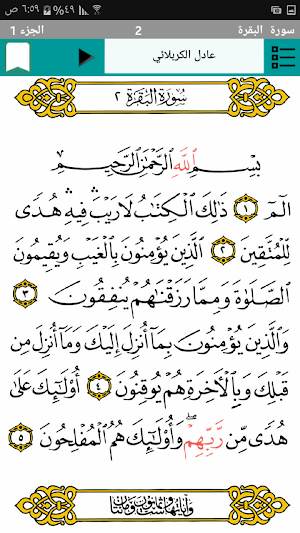 ٦:٥٩ ص ٤٩%
سورة البقرة 2 الجزء 1
عادل الكربلائي
سُورَةُ البَقَرَةِ ٢
بِسْمِ اللَّهِ الرَّحْمَٰنِ الرَّحِيمِ
الٓمٓ ١ ذَٰلِكَ الْكِتَابُ لَا رَيْبَ ۛ فِيهِ ۛ هُدًى
لِّلْمُتَّقِينَ ٢ الَّذِينَ يُؤْمِنُونَ بِالْغَيْبِ وَيُقِيمُونَ
الصَّلَوٰةَ وَمِمَّا رَزَقْنَاهُمْ يُنفِقُونَ ٣
وَالَّذِينَ يُؤْمِنُونَ بِمَا أُنزِلَ إِلَيْكَ وَمَا أُنزِلَ مِن
قَبْلِكَ وَبِالْآخِرَةِ هُمْ يُوقِنُونَ ٤ أُولَٰئِكَ عَلَىٰ
هُدًى مِّن رَّبِّهِمْ ۖ وَأُولَٰئِكَ هُمُ الْمُفْلِحُونَ ٥
وآياتها ست وثمانون ومائتان